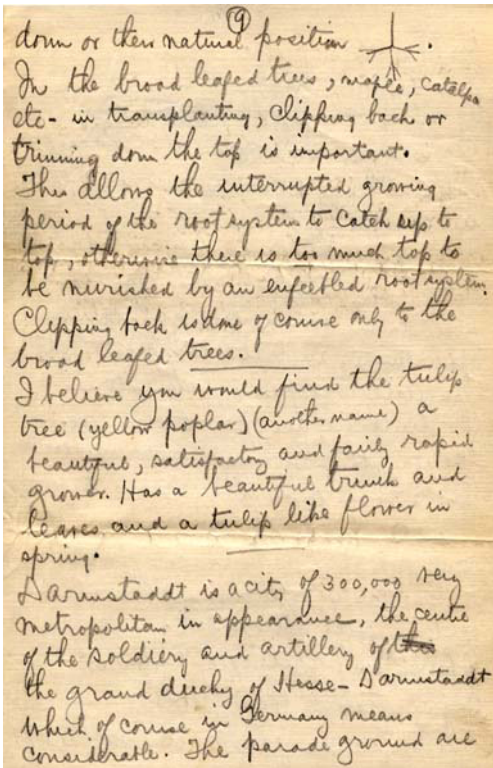 9
down or their natural position .
In the broad leafed trees, maple, catalpa
etc - in transplanting, clipping back or
trimming down the top is important.
This allows the interrupted growing
period of the root system to catch up to
top, otherwise there is too much top to
be nurished by an enfeebled root system.
Clipping back is done of course only to the
broad leafed trees.
I believe you would find the tulip
tree (yellow poplar) (another name) a
beautiful, satisfactory and fairly rapid
grower. Has a beautiful trunk and
leaves and a tulip like flower in
spring.
Darmstaddt is a city of 300,000 very
metropolitan in appearance, the centre
of the soldiery and artillery of this
the grand duchy of Hesse - Darmstaddt
which of course in Germany means
considerable. The parade ground are